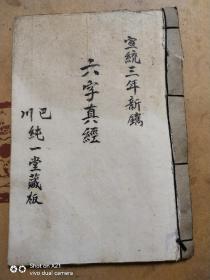 宣統三年新鐫
六字真經
巴川純一堂藏板
SHOT ON X21
vivo dual camera